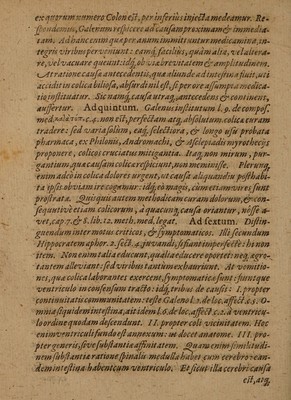 ex quorum numero Colon est, per inferius injecta medeamur. Re-
spondemus, Galenum respicere ad causam proximam & immedia-
tam. Ad hanc enim quae per anum immittuntur medicamina, in-
tegris viribus perveniunt: eamq́; facilius, quàm alia, vel altera-
re, vel vacuare queunt: idq́; ob viae brevitatem & amplitudinem.
At ratione causae antecedentis, quae aliunde ad intestina fluit, uti
accidit in colica biliosa, absurdum est, si per os assumpta medica-
tio instituatur. Sic namq́; causa utraq́; antecedens & continens,
aufertur. Ad quintum. Galenus institutum l. 9. de compos.
med. 4. non est, perfectam atq́; absolutam colicae curam
tradere: sed varia solum, eaq́; selectiora, & longo usu probata
pharmaca, ex Philonis, Andromachi, & Asclepiadis myrotheciis
proponere, colicos cruciatus mitigantia. Itaq́; non mirum, pur-
gantium, quae causam colicae respiciunt, non meminisse. Plerunq́;
enim adeò in colica dolores urgent, ut causa aliquandiu posthabi-
ta ipsis obviam ire cogamur: idq́; eò magis, cùm etiamvires sunt
prostratae. Quisquis autem methodicam curam dolorum, & con-
sequentèr etiam colicorum, à quacunq́; causa oriantur, nosse a-
vet, cap. 7. & 8. lib. 12. meth. med. legat. Ad sextum. Distin-
guendum inter motus criticos, & symptomaticos. Illi secundum
Hippocratem aphor. 2. sect. 4. juvandi, si fiunt imperfectè: hi non
item. Non enim talia educunt, qualia educere oportet: neq́; agro-
tantem alleviant: sed viribus tantùm exhauriunt. At vomitio-
nes, quae colica laborantes exercent, symptomaticae sunt: fiuntque
ventriculo in consensum tracto: idq́; tribus de causis: I. propter
continuitatis communitatem: teste Galeno l. 3. de loc. affect. c. 2. O-
mnia siquidem intestina, ait idem l. 6. de loc. affect. c. 2. à ventricu-
lo ordine quodam descendunt. II. propter coli vicinitatem. Hoc
enim ventriculi fundo est annexum: ut docet anatome. III. pro-
pter generis, sive substantiae affinitatem. Quam enim similitudi-
nem substantiae ratione spinalis medulla habet cum cerebro: ean-
dem intestina habent cum ventriculo. Et sicut illa cerebri causa
est, atq́;